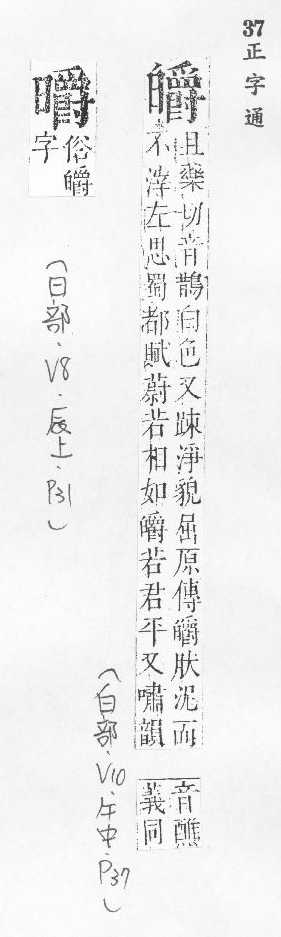 37正字通
皭
且藥切音鵲白色又疎淨貌屈原傳皭狀泥而
不滓左思蜀都賦蔚若相如皭若君平又嘯韻
音醮
義同
(白部、V10、午中、P37)
㬭
俗皭
字
(日部、V8、辰上、P31)